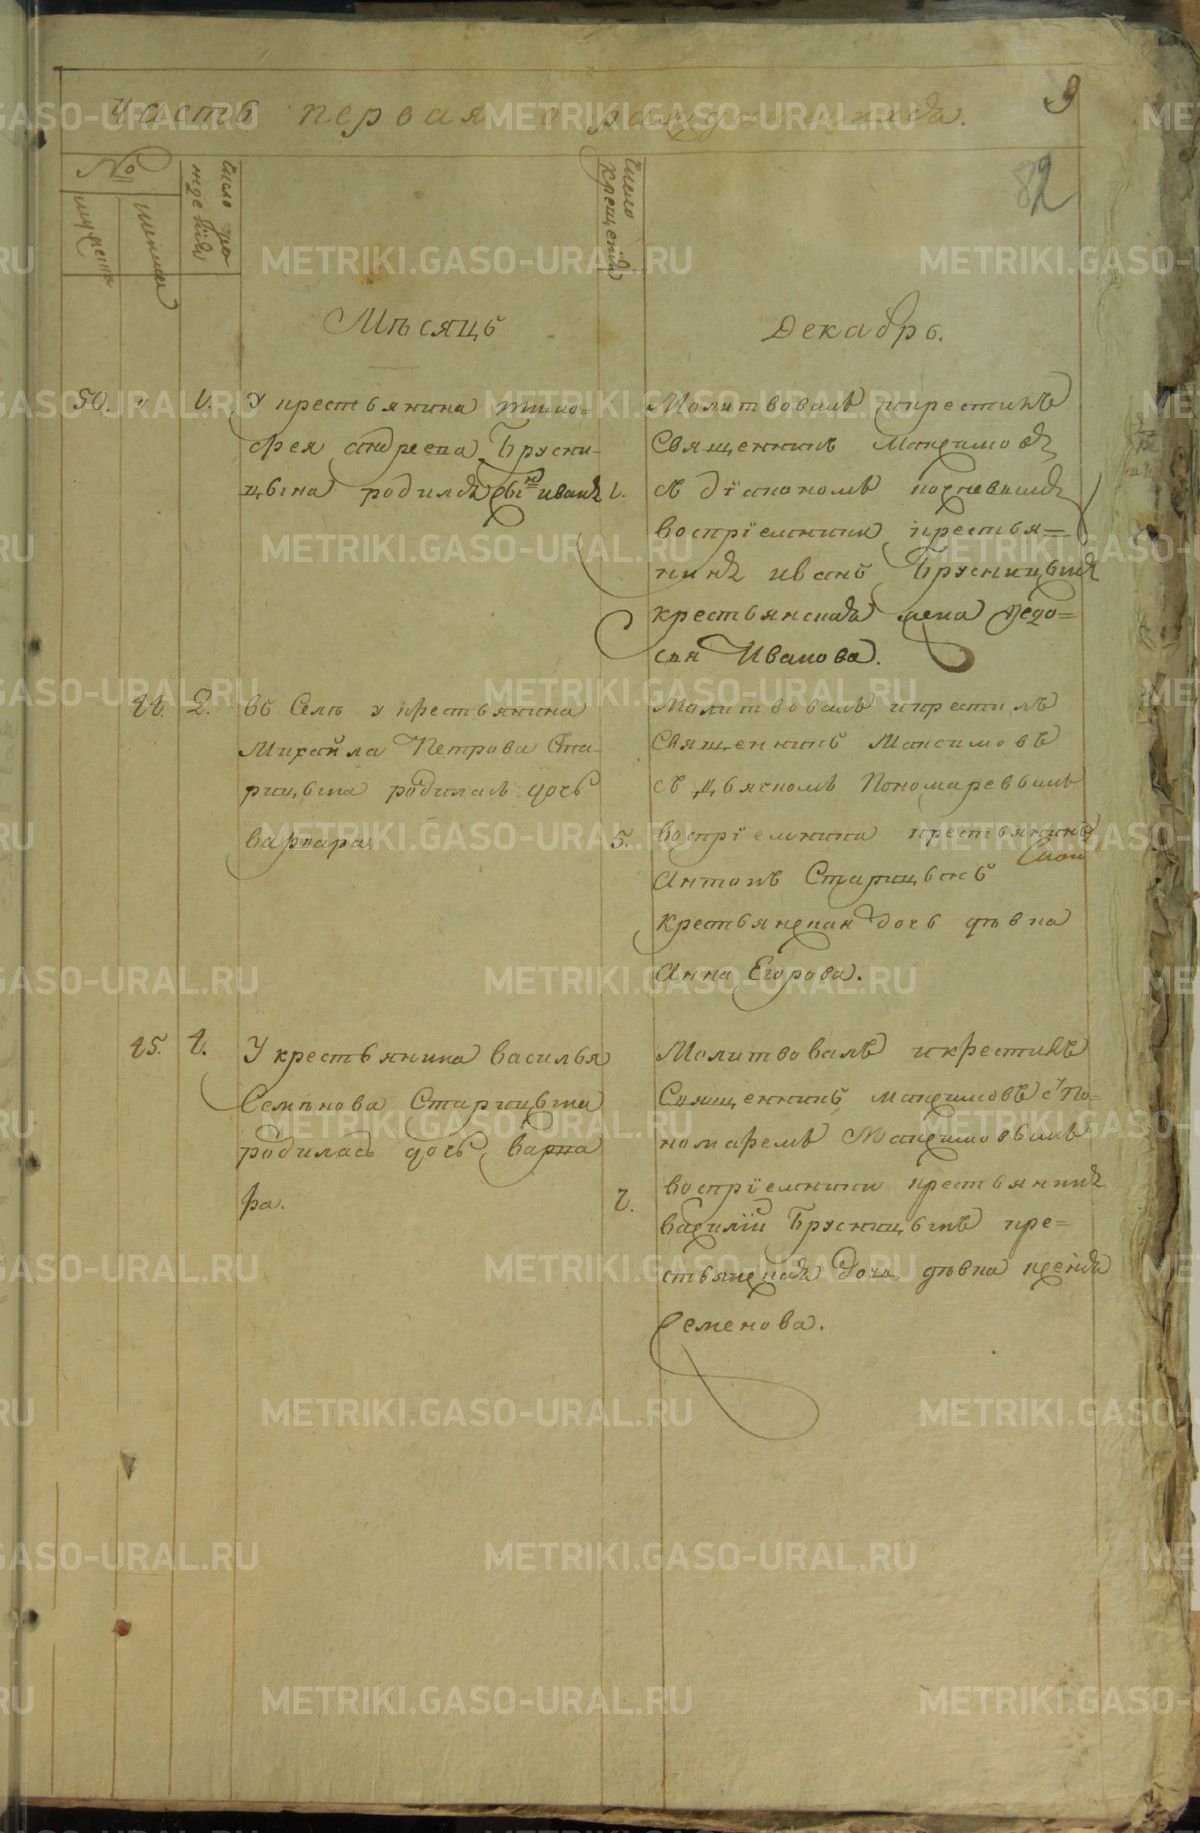 Часть первая о раждающихся.
9
82
№
мужеска
женска
Число ро
жденїя
Число
крещенїя
Мѣсяцъ
Декабрь.
50. " 1. У крестьянина Тимо=
фея Андреева Брусни-
цына родился сынъ Иванъ 1.
Молитвовалъ икрестилъ
Священникъ Максимовъ
съ дїакономъ
воспрїемники крестья=
нинъ Иванъ Брусницынъ
крестьянская жена Ѳедо=
сья Иванова.
44. 2. въ Селѣ у крестьянина
Михайла Петрова Ста-
рицына родилась дочь
варвара. 5.
Молитвовалъ икрестилъ
Священникъ Максимовъ
съ дьяконо͏мъ Пономаревымъ
воспрїемники крестьянинъ
Антонъ Старицынъ
крестьянская дочь дѣвка
Анна Егорова.
45. 4. У крестьянина василья
Семѣнова Старицына
родилась дочь варва
ра. 7.
Молитвовалъ икрестилъ
Священникъ Максимовъ с По-
номаремъ Максимовымъ
воспрїемники крестьянинъ
василїй Брусницынъ кре=
стьянская дочь дѣвка Ксенїя
Семенова.
METRIKI.GASO-URAL.RU